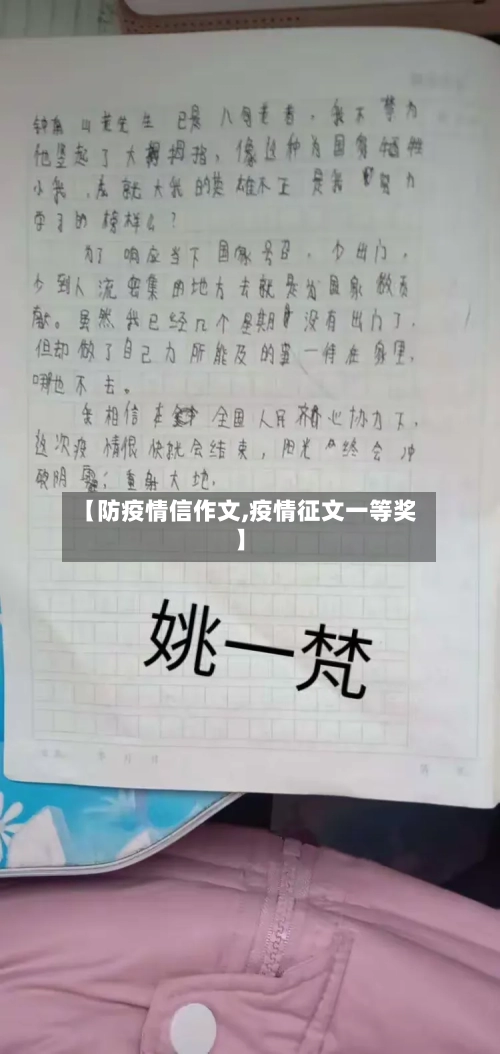 钟南山老先生已是八旬老者，我不禁为
他竖起了大拇指，像这种为国家牺牲
小我，成就大我的英雄不正是我努力
学习的榜样么？
为了响应当下国家号召，少出门，
少到人流密集的地方去就是为国家做贡
献。虽然我已经几个星期没有出门了，
但却做了自己力所能及的事一待在家里，
哪也不去。
我相信在全国人民齐心协力下，
这次疫情很快就会结束，阳光终会冲
破阴霾；重射大地.
【防疫情信作文,疫情征文一等奖
】
姚一梵